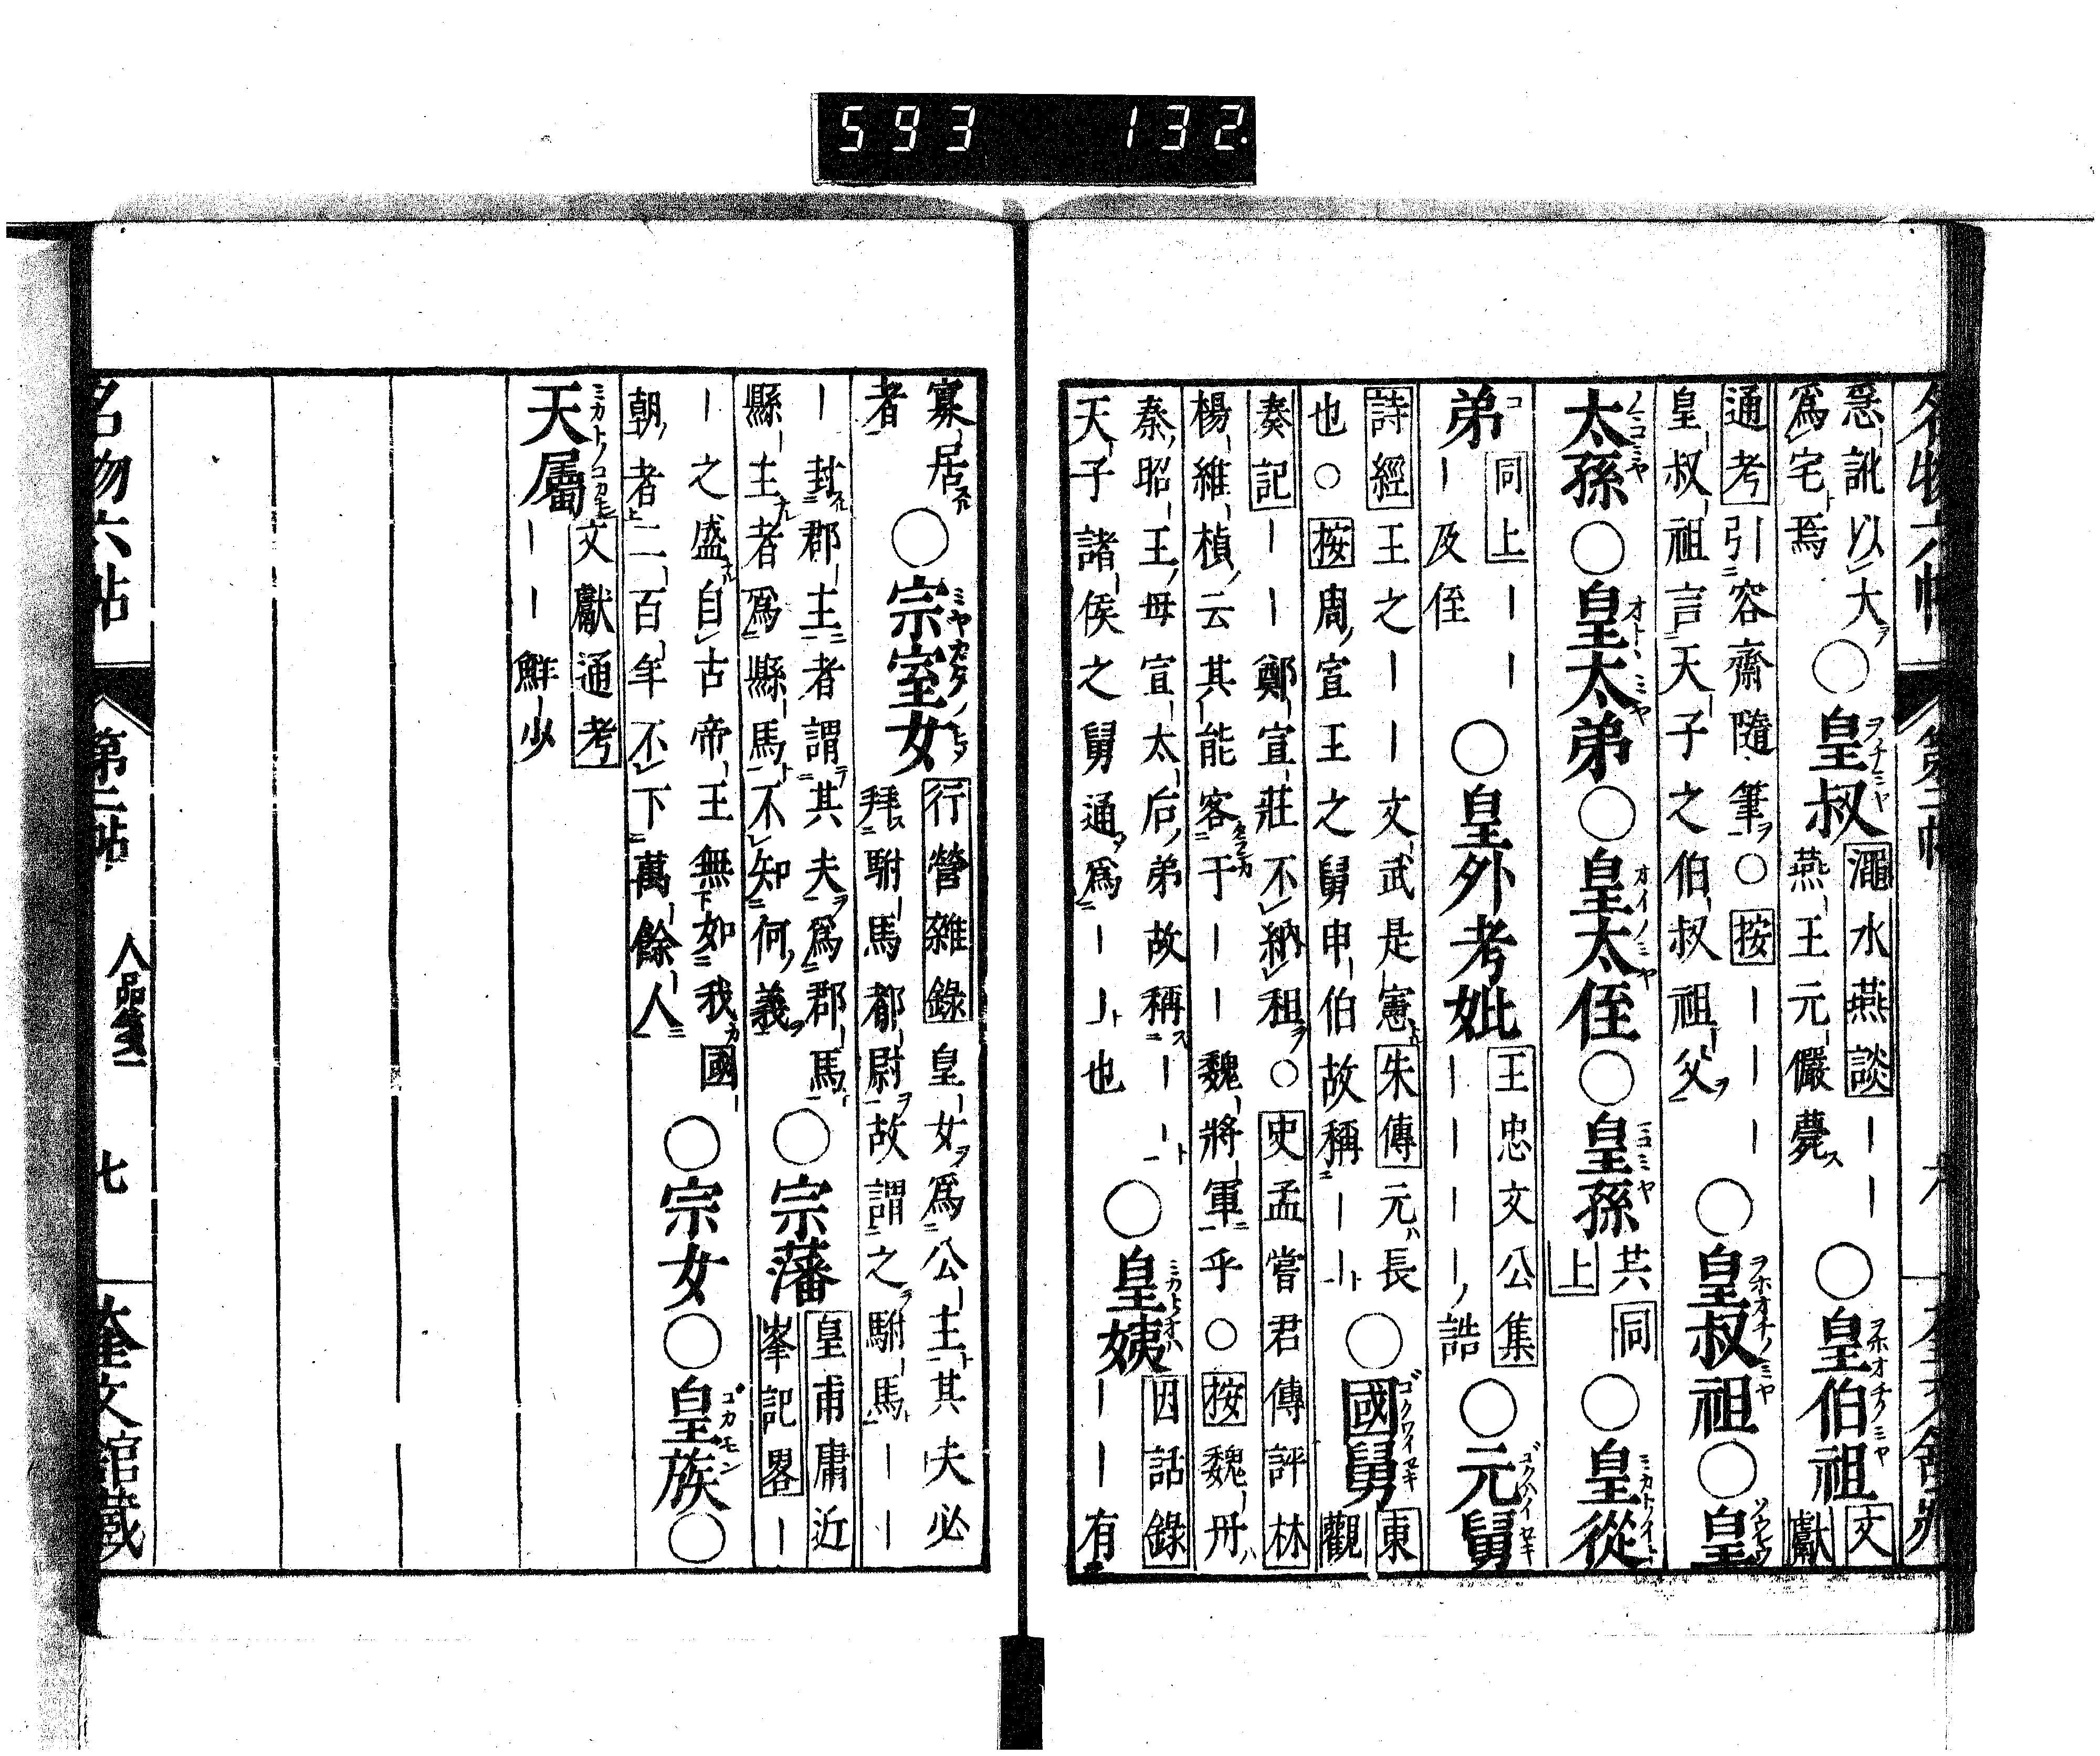 593 132.
惡訛以大 ○皇叔 澠水燕談 ｜｜ ○皇伯祖 文
爲宅焉 燕王元儼薨 獻
通考 引容齋隨筆○按｜｜｜ ○皇叔祖○皇
皇叔祖言天子之伯叔祖父
太孫○皇太弟○皇太侄○皇孫 共同上 ○皇從
弟 同上 ｜｜ ○皇外考妣 王忠文公集 ○元舅
｜及侄 ｜｜｜｜誥
詩經 王之｜｜文武是憲 朱傳 元長 ○國舅 東
也○按周宣王之舅申伯故稱｜｜ 觀
奏記 ｜｜鄭宣莊不納租○史孟嘗君傳評林
楊維楨云其能客于｜｜魏將軍乎○按魏冉
秦昭王母宣太后弟故稱｜｜ ○皇姨 因話錄
天子諸侯之舅通爲｜｜也 ｜｜有
寡居 ○宗室女 行營雜錄 皇女爲公主其夫必
者 拜駙馬都尉故謂之駙馬｜｜
｜封郡主者謂其夫爲郡馬 ○宗藩 皇甫庸近
縣主者爲縣馬不知何義 峯記畧 ｜
｜之盛自古帝王無如我國 ○宗女○皇族○
朝者二百年不下萬餘人
天屬 文獻通考
｜｜鮮少
名物六帖 第二帖 人品箋一 七 奎文館藏